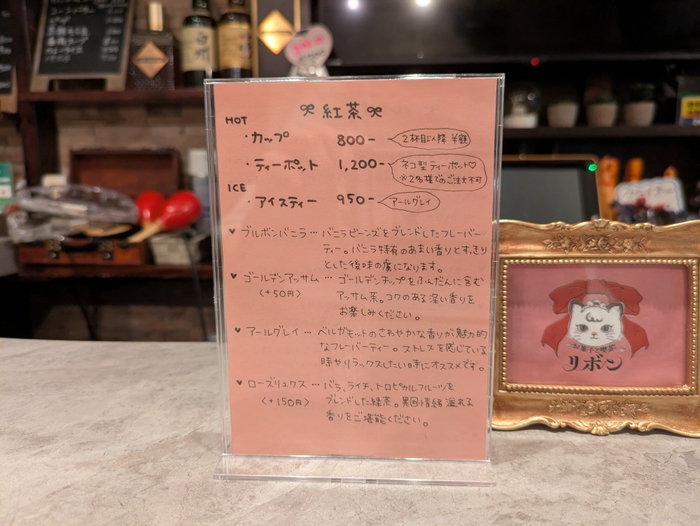 紅茶
HOT
・カップ 800- 2杯目以降 半額
・ティーポット 1,200- ネコ型ティーポット♡
※2名様でのご注文不可
ICE
・アイスティー 950- アールグレイ
♥ ブルボンバニラ … バニラビーンズをブレンドしたフレーバー
ティー。バニラ特有のあまい香りとすっきり
とした後味の虜になります。
♥ ゴールデンアッサム … ゴールデンチップをふんだんに含む
〈+50円〉 アッサム茶。コクのある深い香りを
お楽しみください。
♥ アールグレイ … ベルガモットのさわやかな香りが魅力的
なフレーバーティー。ストレスを感じている
時やリラックスしたい時にオススメです。
♥ ローズリュクス … バラ、ライチ、トロピカルフルーツを
〈+150円〉 ブレンドした緑茶。異国情緒溢れる
香りをご堪能ください。
リボン